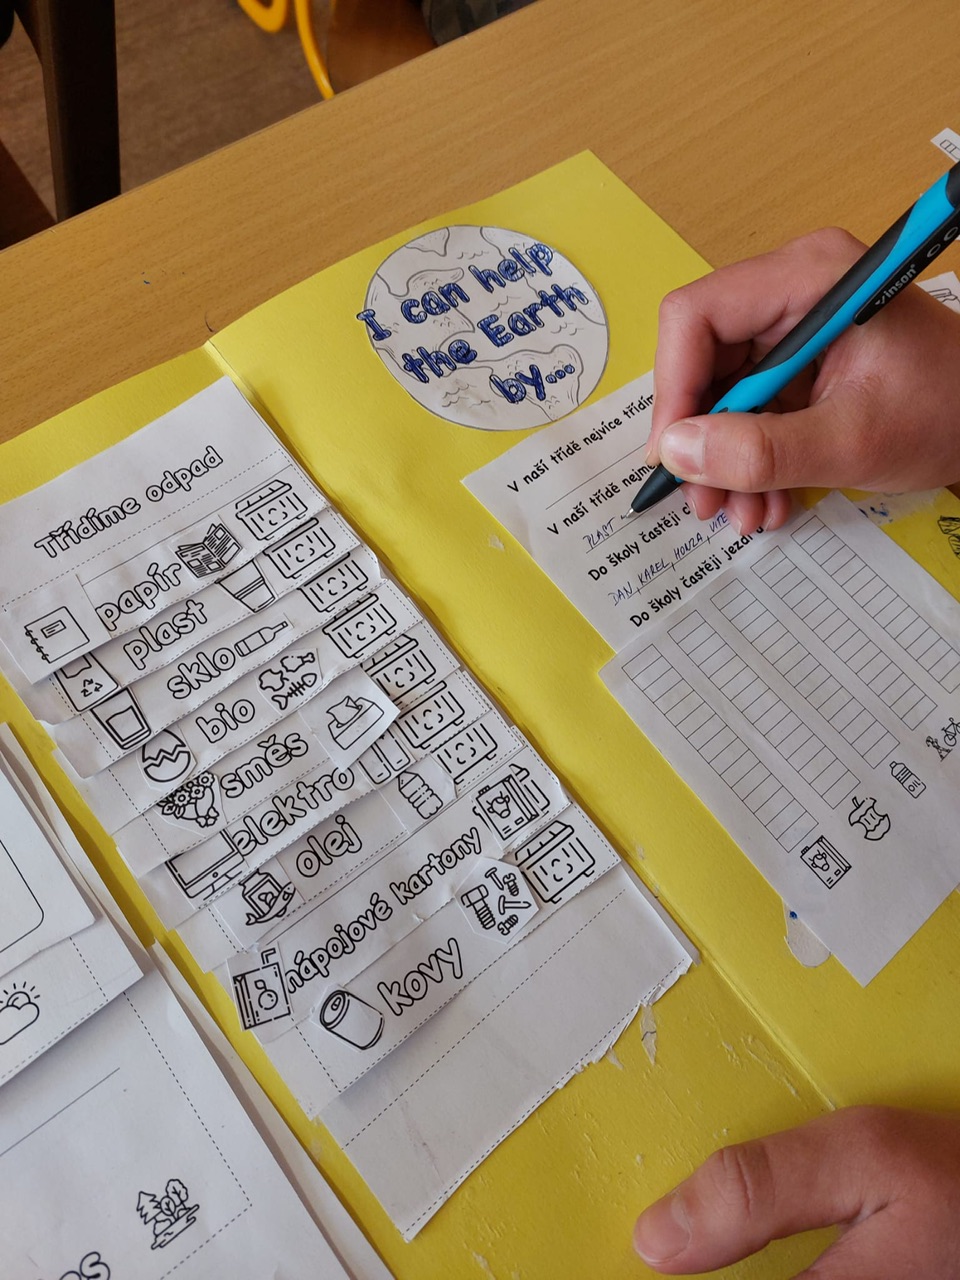 I can help
the Earth
by...
Třídíme odpad
papír
plast
sklo
bio
směs
elektro
olej
nápojové kartony
kovy
V naší třídě nejvíce třídím
V naší třídě nejme
PLAST
Do školy častěji c
DAN, KAREL, HONZA, VÍTE
Do školy častěji jezd
Vinson